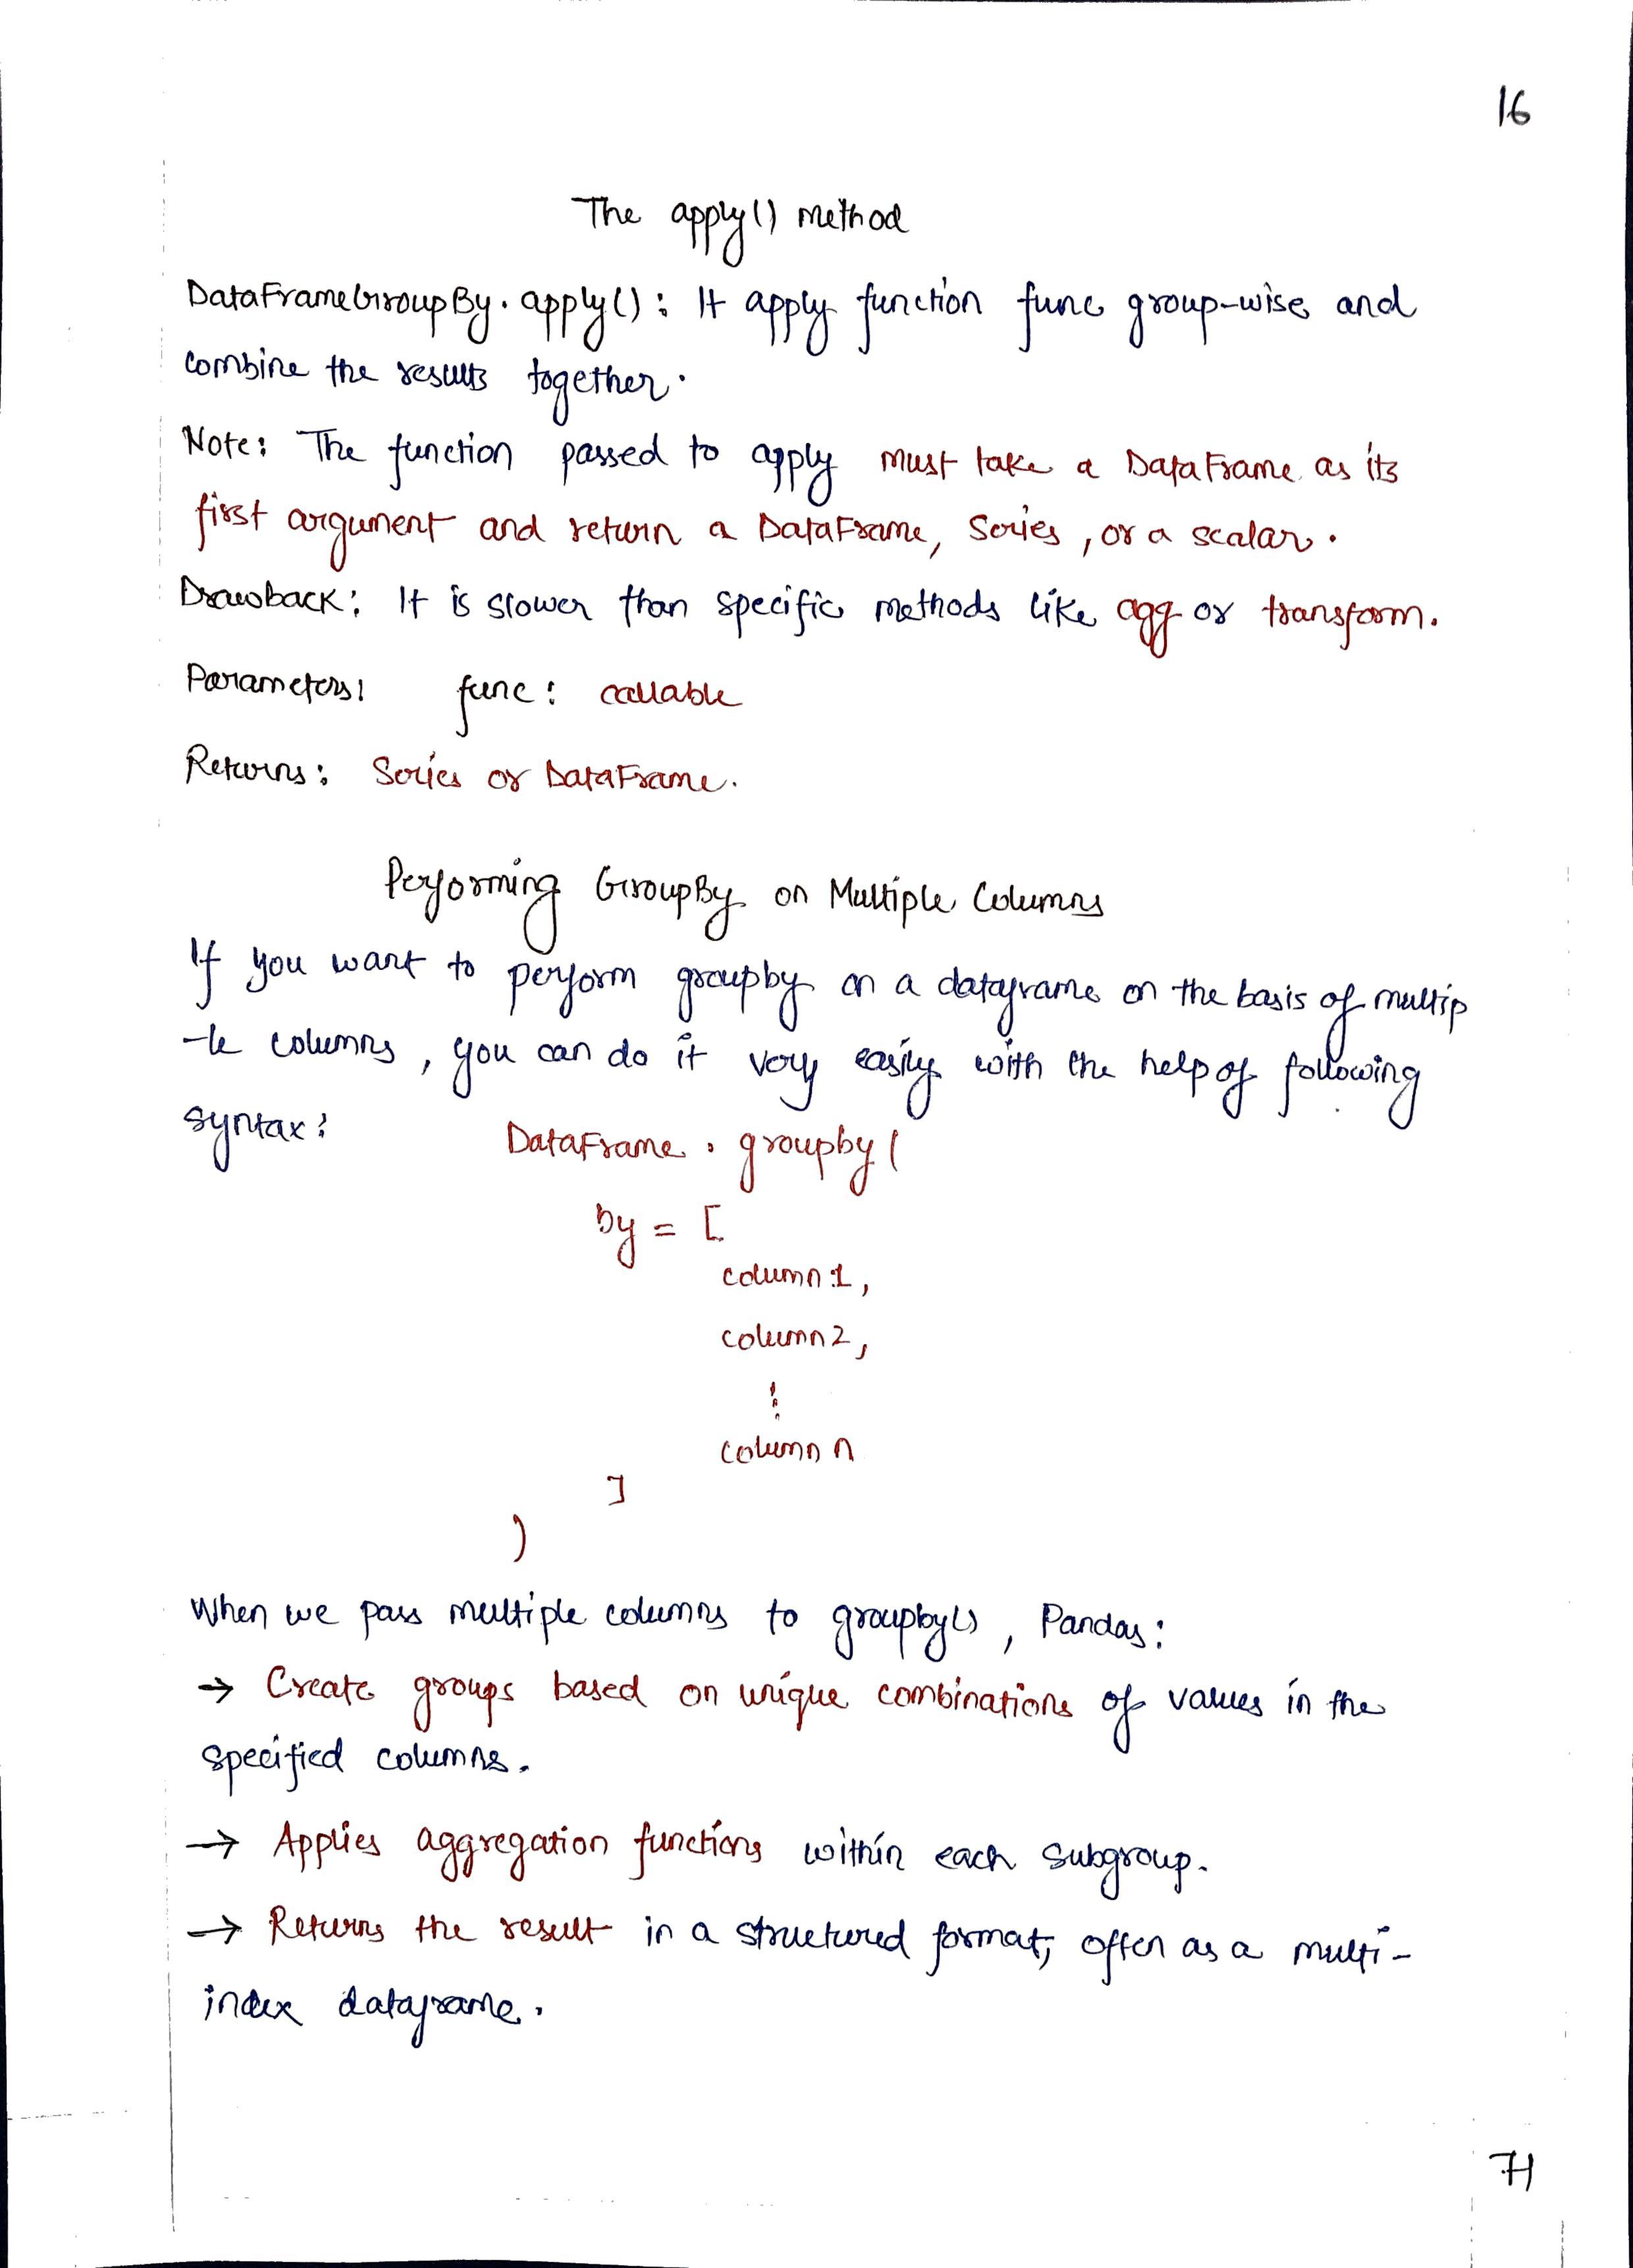 16
The apply() method
DataFrameGroupBy.apply(): It apply function func group-wise and
combine the results together.
Note: The function passed to apply must take a DataFrame as its
first argument and return a DataFrame, Series, or a scalar.
Drawback: It is slower than specific methods like agg or transform.
Parameters: func: callable
Returns: Series or DataFrame.
Performing GroupBy on Multiple Columns
If you want to perform groupby on a dataframe on the basis of multip
-le columns, you can do it very easily with the help of following
syntax:
DataFrame.groupby(
by = [
column1,
column2,
⋮
column n
]
)
When we pass multiple columns to groupby(), Pandas:
→ Create groups based on unique combinations of values in the
specified columns.
→ Applies aggregation functions within each subgroup.
→ Returns the result in a structured format, often as a multi-
index dataframe.